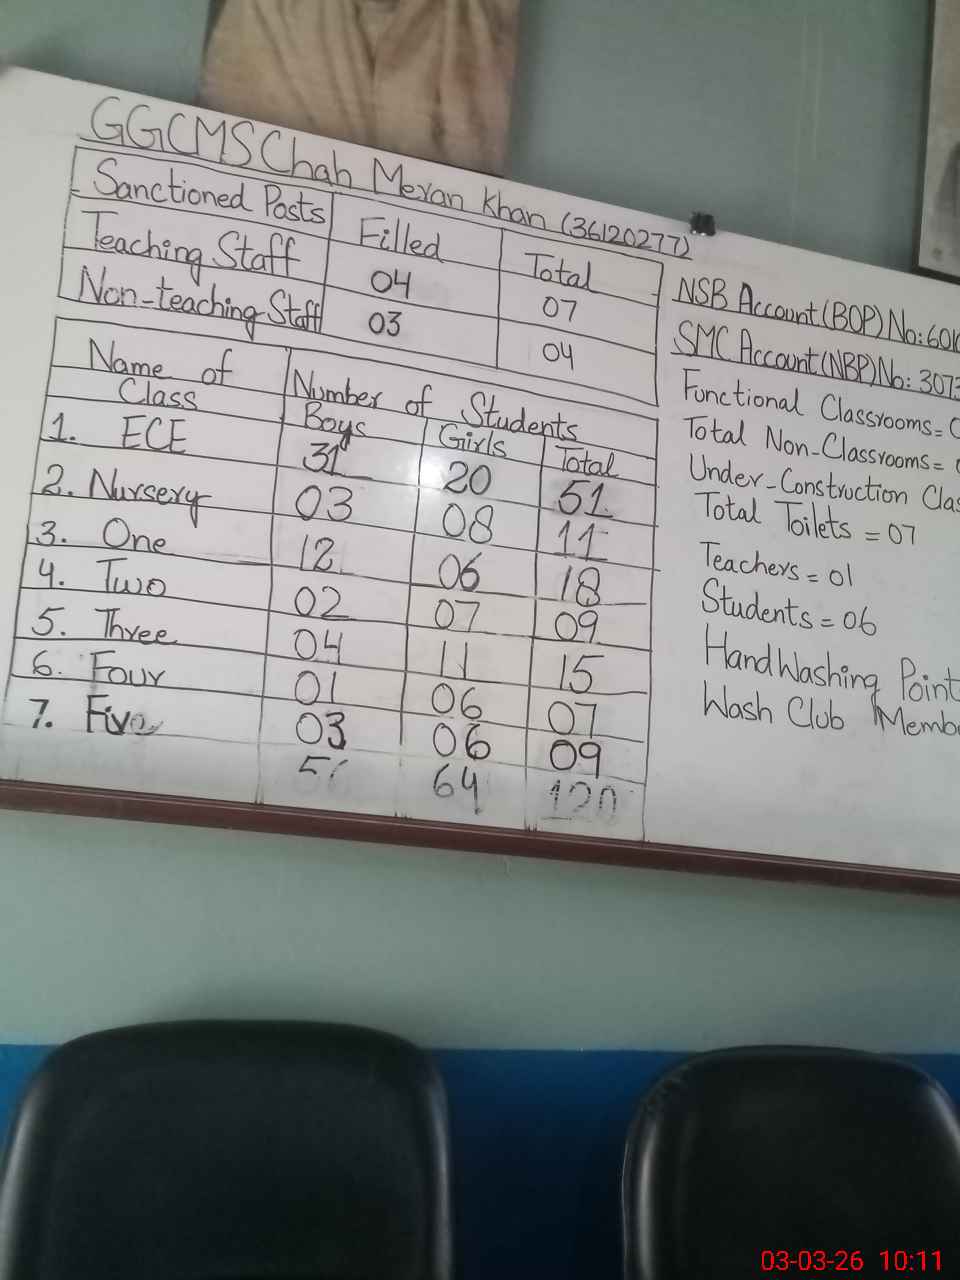 GGCMS Chah Meran Khan (36120277)
Sanctioned Posts Filled Total
Teaching Staff 04 07
Non-teaching Staff 03 04
Name of Class Number of Students
Boys Girls Total
1. ECE 31 20 51
2. Nursery 03 08 11
3. One 12 06 18
4. Two 02 07 09
5. Three 04 11 15
6. Four 01 06 07
7. Five 03 06 09
64 120
NSB Account (BOP) No:
SMC Account (NBP) No:
Functional Classrooms =
Total Non-Classrooms =
Under-Construction
Total Toilets = 07
Teachers = 01
Students = 06
Hand Washing Point
Wash Club
03-03-26 10:11